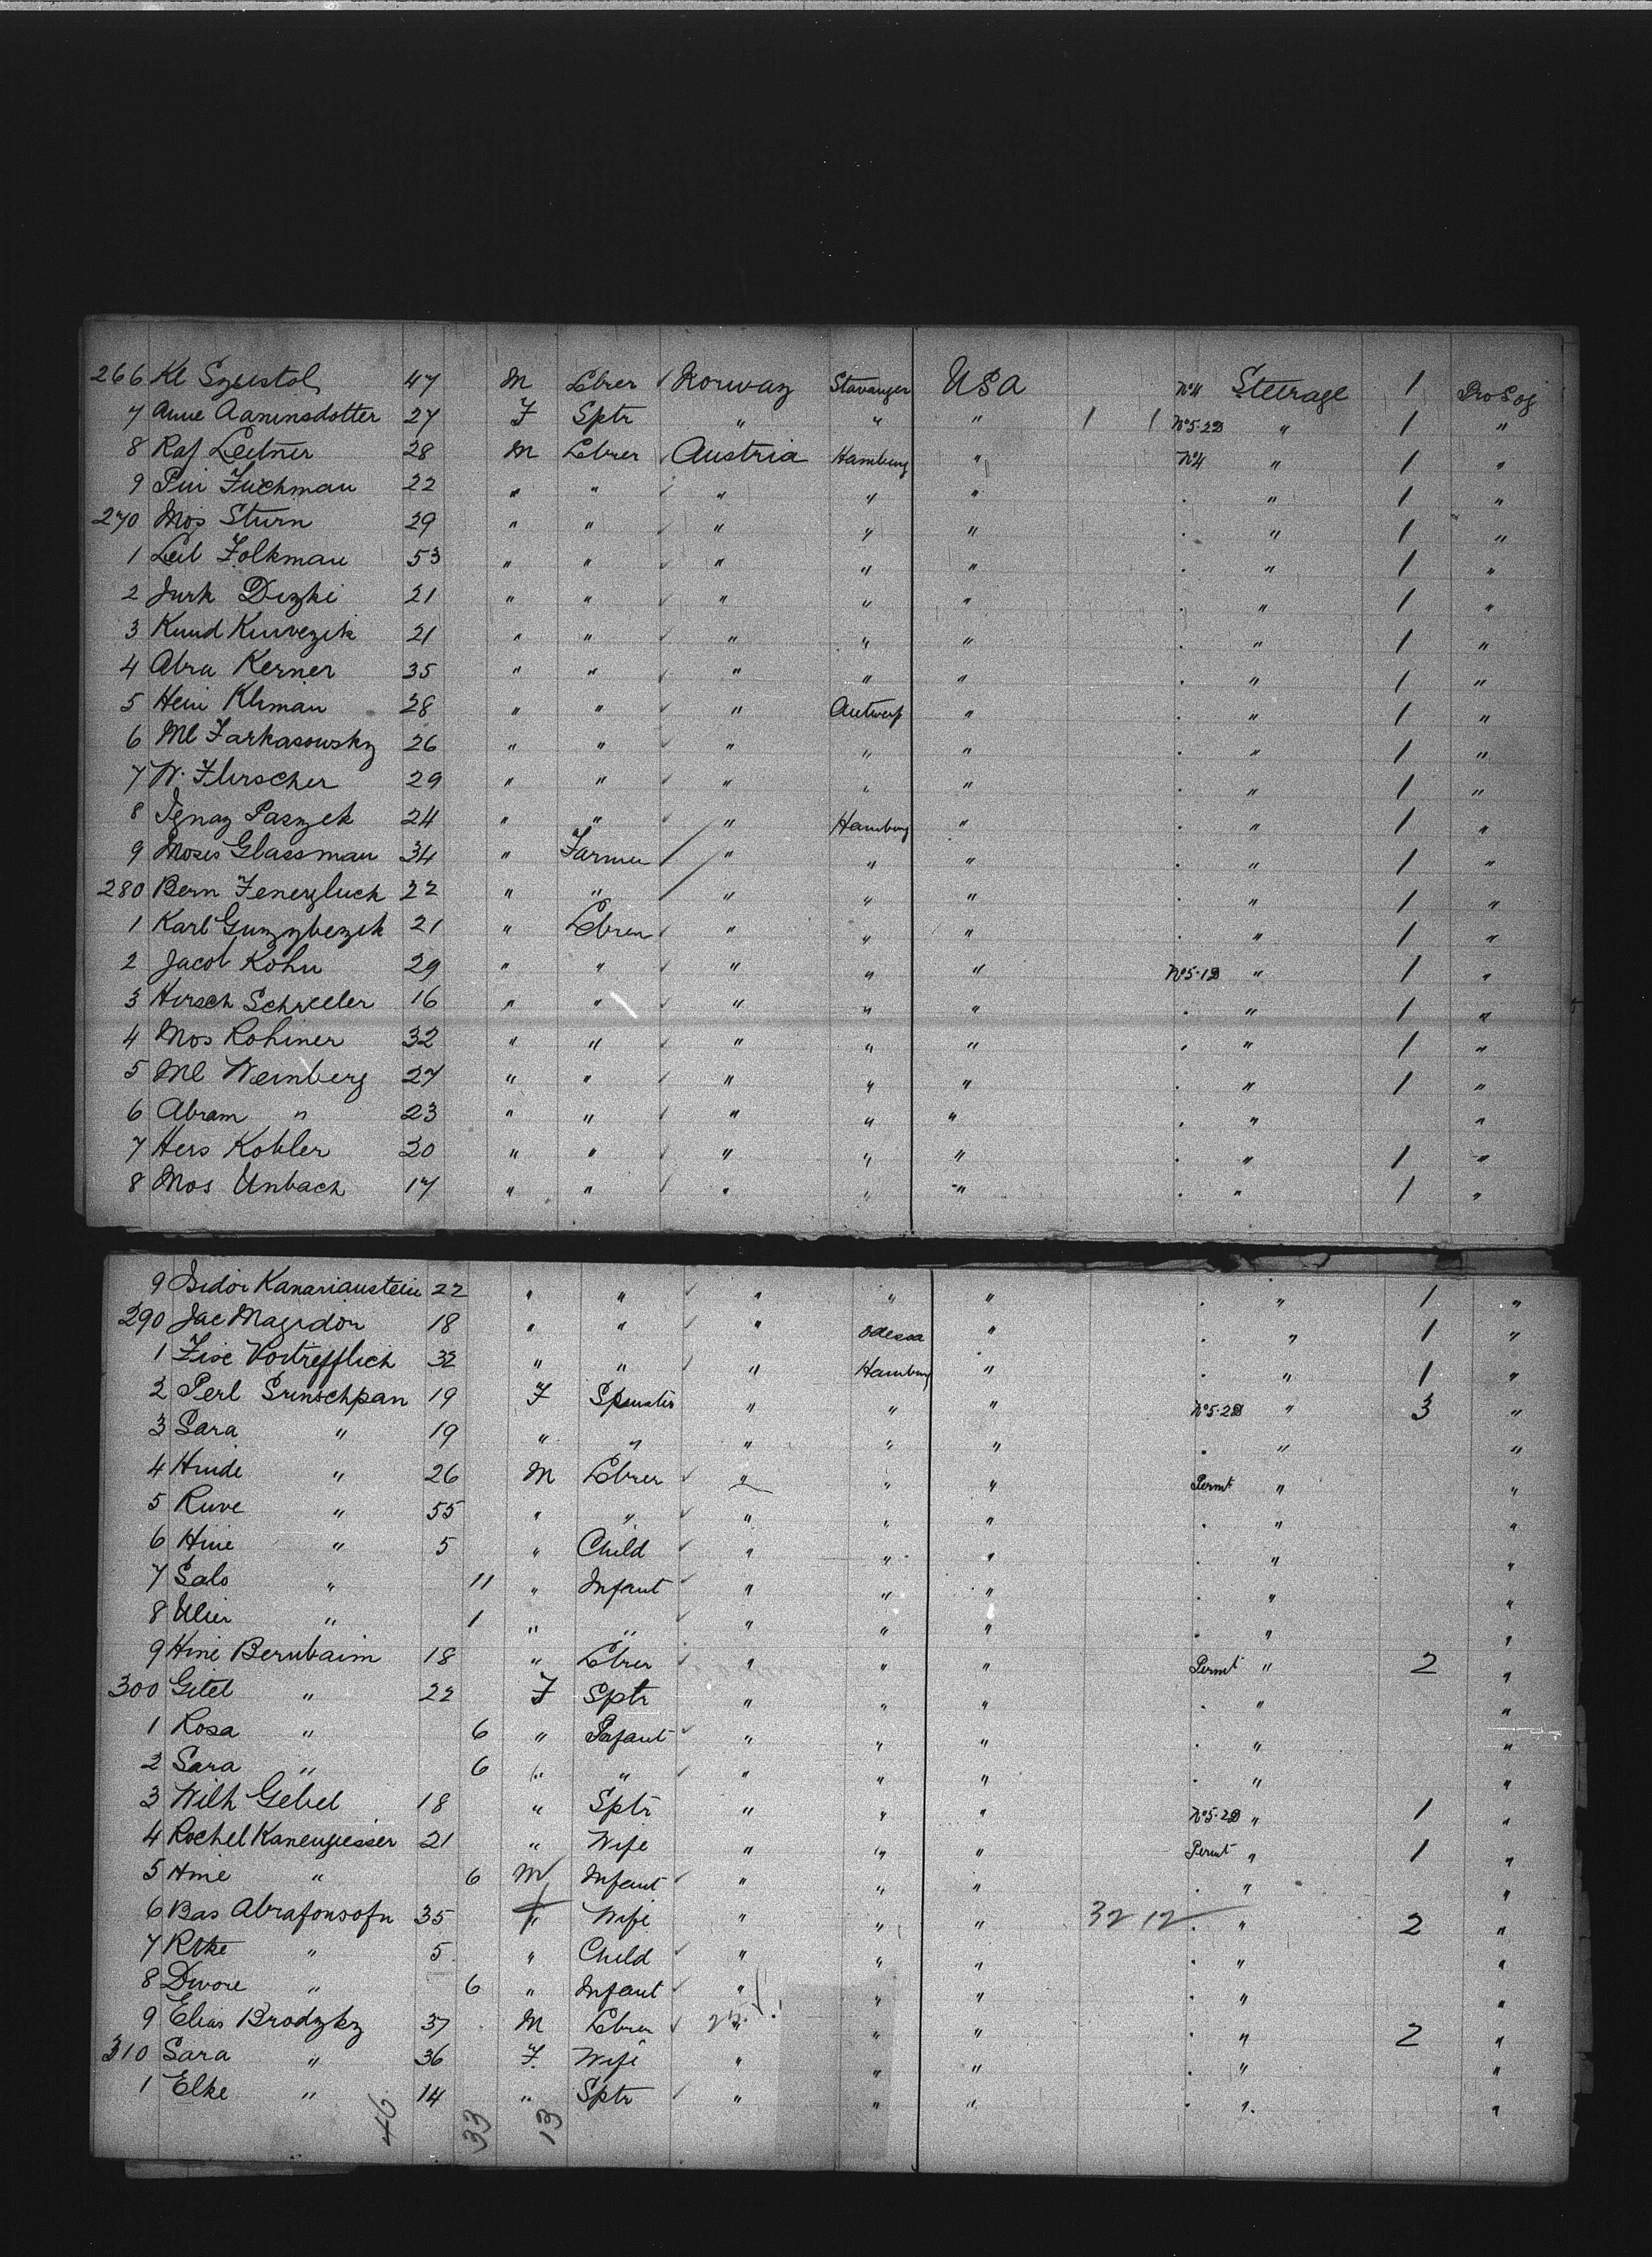 266 Kl Szustol 47 M Lbrer ✓ Norway Stavanger USA No4 Steerage 1 Pro Soj
7 Anne Aanensdotter 27 F Sptr " " " 1 1 No5-2D " 1 "
8 Raf Leitner 28 M Lbrer ✓ Austria Hamburg " No4 " 1 "
9 Pin Fuchman 22 " " ✓ " " " . " 1 "
270 Mos Sturn 29 " " ✓ " " " . " 1 "
1 Leib Folkman 53 " " ✓ " " " . " 1 "
2 Jurk Dizki 21 " " ✓ " " " . " 1 "
3 Knud 21 " " ✓ " " " . " 1 "
4 Abra Kerner 35 " " ✓ " " " . " 1 "
5 Hein Kliman 28 " " ✓ " Antwerp " . " 1 "
6 Ml Farkasowsky 26 " " ✓ " " " . " 1 "
7 W. Flerscher 29 " " ✓ " " " . " 1 "
8 Ignaz Paszek 24 " " ✓ " Hamburg " . " 1 "
9 Moses Glassman 34 " Farmer / " " " . " 1 "
280 Bern 22 " " / " " " . " 1 "
1 Karl 21 " Lbrer ✓ " " " . " 1 "
2 Jacob Kohn 29 " " ✓ " " " No5-1D " 1 "
3 Hersch 16 " " ✓ " " " . " 1 "
4 Mos Rohiner 32 " " ✓ " " " . " 1 "
5 Ml Weinberg 27 " " ✓ " " " . " 1 "
6 Abram " 23 " " ✓ " " " . " "
7 Hers Kohler 20 " " ✓ " " " . " 1 "
8 Mos Unbach 17 " " ✓ " " " . " 1 "
9 Isidor Kanarianstein 22 " " ✓ " " " . " 1 "
290 Jac Magidor 18 " " ✓ " Odessa " . " 1 "
1 Zise Vortrefflich 32 " " ✓ " Hamburg " . " 1 "
2 Perl Grinschpan 19 F Spinster " " " No5-2D " 3 "
3 Sara " 19 " " " " " . " "
4 Hinde " 26 M Lbrer ✓ " " " Permt " "
5 Ruve " 55 " " ✓ " " " . " "
6 Hine " 5 " Child ✓ " " " . " "
7 Salo " 11 " Infant ✓ " " " . " "
8 " 1 " " ✓ " " " . " "
9 Hine Bernbaim 18 " Lbrer ✓ " " " Permt " 2 "
300 Gitel " 22 F Sptr " " " . " "
1 Rosa " 6 " Infant ✓ " " " . " "
2 Sara " 6 " " ✓ " " " . " "
3 Wilh Gebel 18 " Sptr " " " No5-2D " 1 "
4 Rochel Kanengiesser 21 " Wife " " " Permt " 1 "
5 Hine " 6 M Infant ✓ " " " . " "
6 Bas Abrafonsofn 35 " Wife " " " 32 12 . " 2 "
7 Rike " 5 " Child ✓ " " " . " "
8 Dwore " 6 " Infant ✓ " " " . " "
9 Elias Brodzky 37 M Lbrer ✓ " " " . " 2 "
310 Sara " 36 F. Wife " " " . " "
1 Elke " 14 " Sptr ✓ " " " . " "
46 33 13